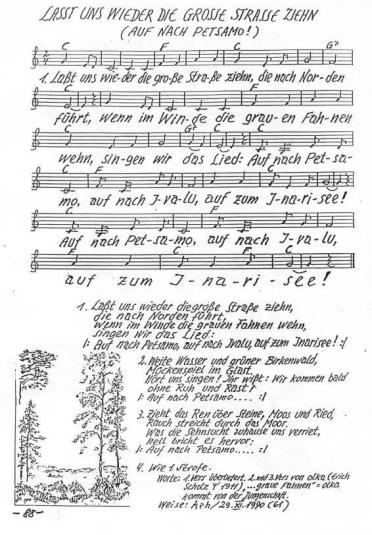 LASST UNS WIEDER DIE GROSSE STRASSE ZIEHN
(AUF NACH PETSAMO!)
C F C G7
1. Laßt uns wie-der die gro-ße Stra-ße ziehn, die nach Nor-den
C F
führt, wenn im Win-de die grau-en Fah-nen
C G7 C
wehn, sin-gen wir das Lied: Auf nach Pet-sa-
C F C
mo, auf nach I-va-lu, auf zum I-na-ri-see!
C F
Auf nach Pet-sa-mo, auf nach I-va-lu,
C F C
auf zum I-na-ri-see!
1. Laßt uns wieder die große Straße ziehn,
die nach Norden führt,
wenn im Winde die grauen Fahnen wehn,
singen wir das Lied:
|: Auf nach Petsamo, auf nach Ivalu, auf zum Inarisee! :|
2. Weite Wasser und grüner Birkenwald,
Mückenspiel im Glast.
Hört uns singen! Ihr wißt: Wir kommen bald
ohne Ruh und Rast!
|: Auf nach Petsamo.... :|
3. Zieht das Ren über Steine, Moos und Ried,
Rauch streicht durch das Moor.
Was die Sehnsucht zuhause uns verriet,
hell bricht es hervor:
|: Auf nach Petsamo.... :|
4. Wie 1. Strofe.
Worte: 1. Vers überliefert, 2. und 3. Vers von olka (Erich
Scholz * 1911), „...graue Fahnen" = olka
kommt von der Jungenschaft.
Weise: 29. XI. 1990
-88-